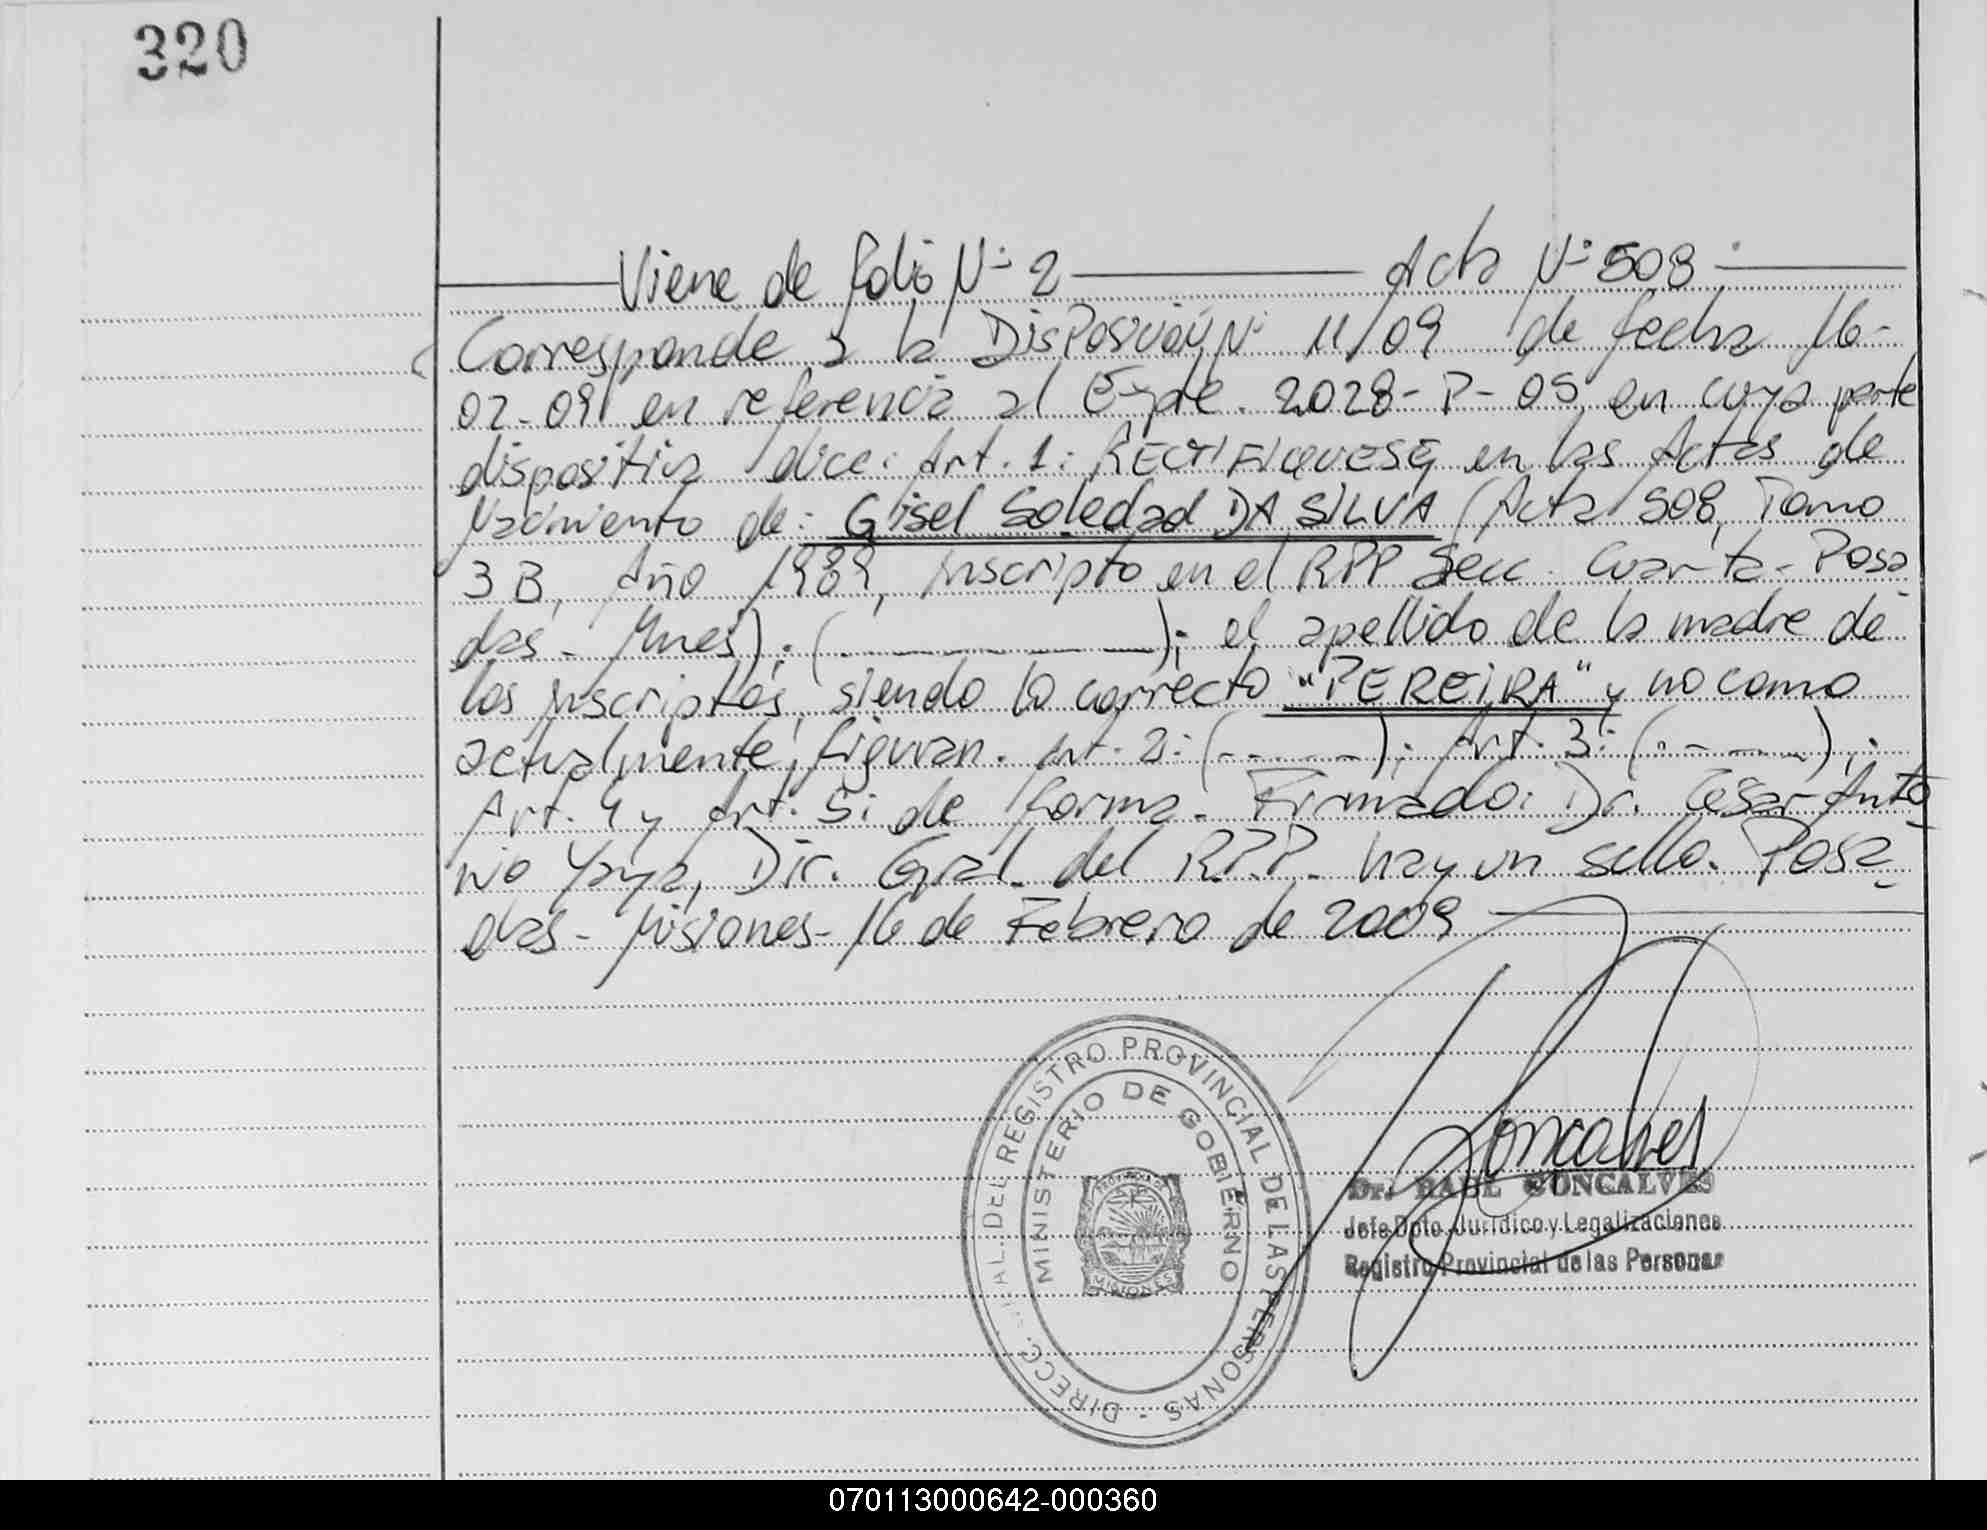 320
Viene de folio Nº 2 Acta Nº 508
Corresponde a la DisPosición Nº 11/09 de fecha 16-
02-09 en referencia al Expte. 2028-P-05, en cuya parte
dispositiva dice: Art. 1: RECTIFIQUESE en las Actas de
Nacimiento de: Gisel Soledad DA SILVA (Acta 508, Tomo
3 B, Año 1989, inscripto en el RPP Secc. Cuarta- Posa
das- Mnes); ( - - - - - - - ); el apellido de la madre de
los inscriptos, siendo lo correcto "PEREIRA" y no como
actualmente figuran. Art. 2: (- - - - -); Art. 3: (- - - - -);
Art. 4 y Art. 5: de forma. Firmado: Dr. Cesar Anto
nio Yaya, Dir. Gral. del R.P.P. hay un sello. Posa
das- Misiones- 16 de Febrero de 2009
DIRECC. GRAL. DEL REGISTRO PROVINCIAL DE LAS PERSONAS -
MINISTERIO DE GOBIERNO
MISIONES
Goncalves
Dr. RAUL GONCALVES
Jefe Dpto. Jurídico y Legalizaciones
Registro Provincial de las Personas
070113000642-000360